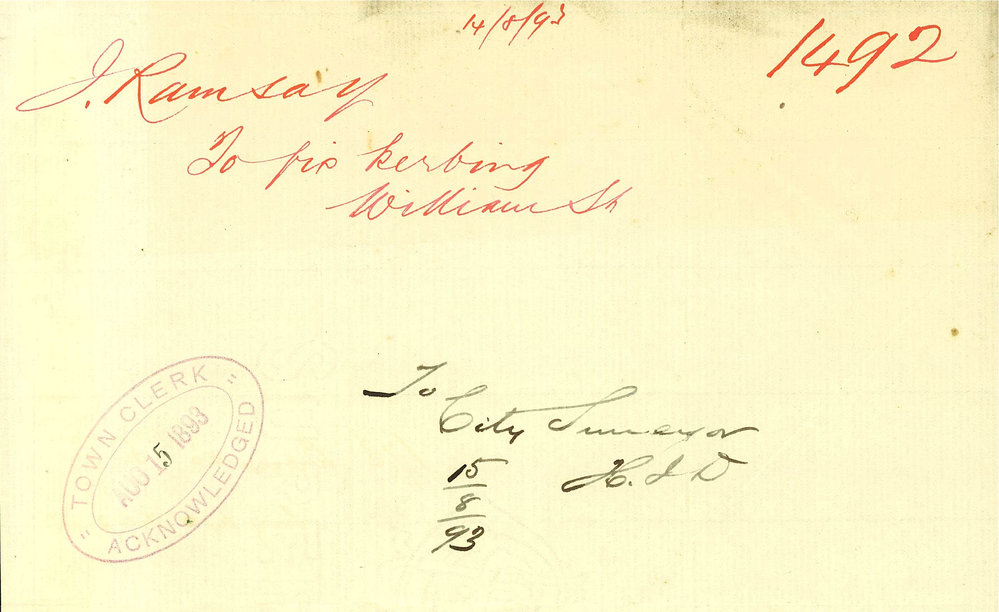 14/8/93
1492
J. Ramsay
To fix kerbing
William St
TOWN CLERK
AUG 15 1893
ACKNOWLEDGED
To
City Surveyor
15 H.J.D
8
93